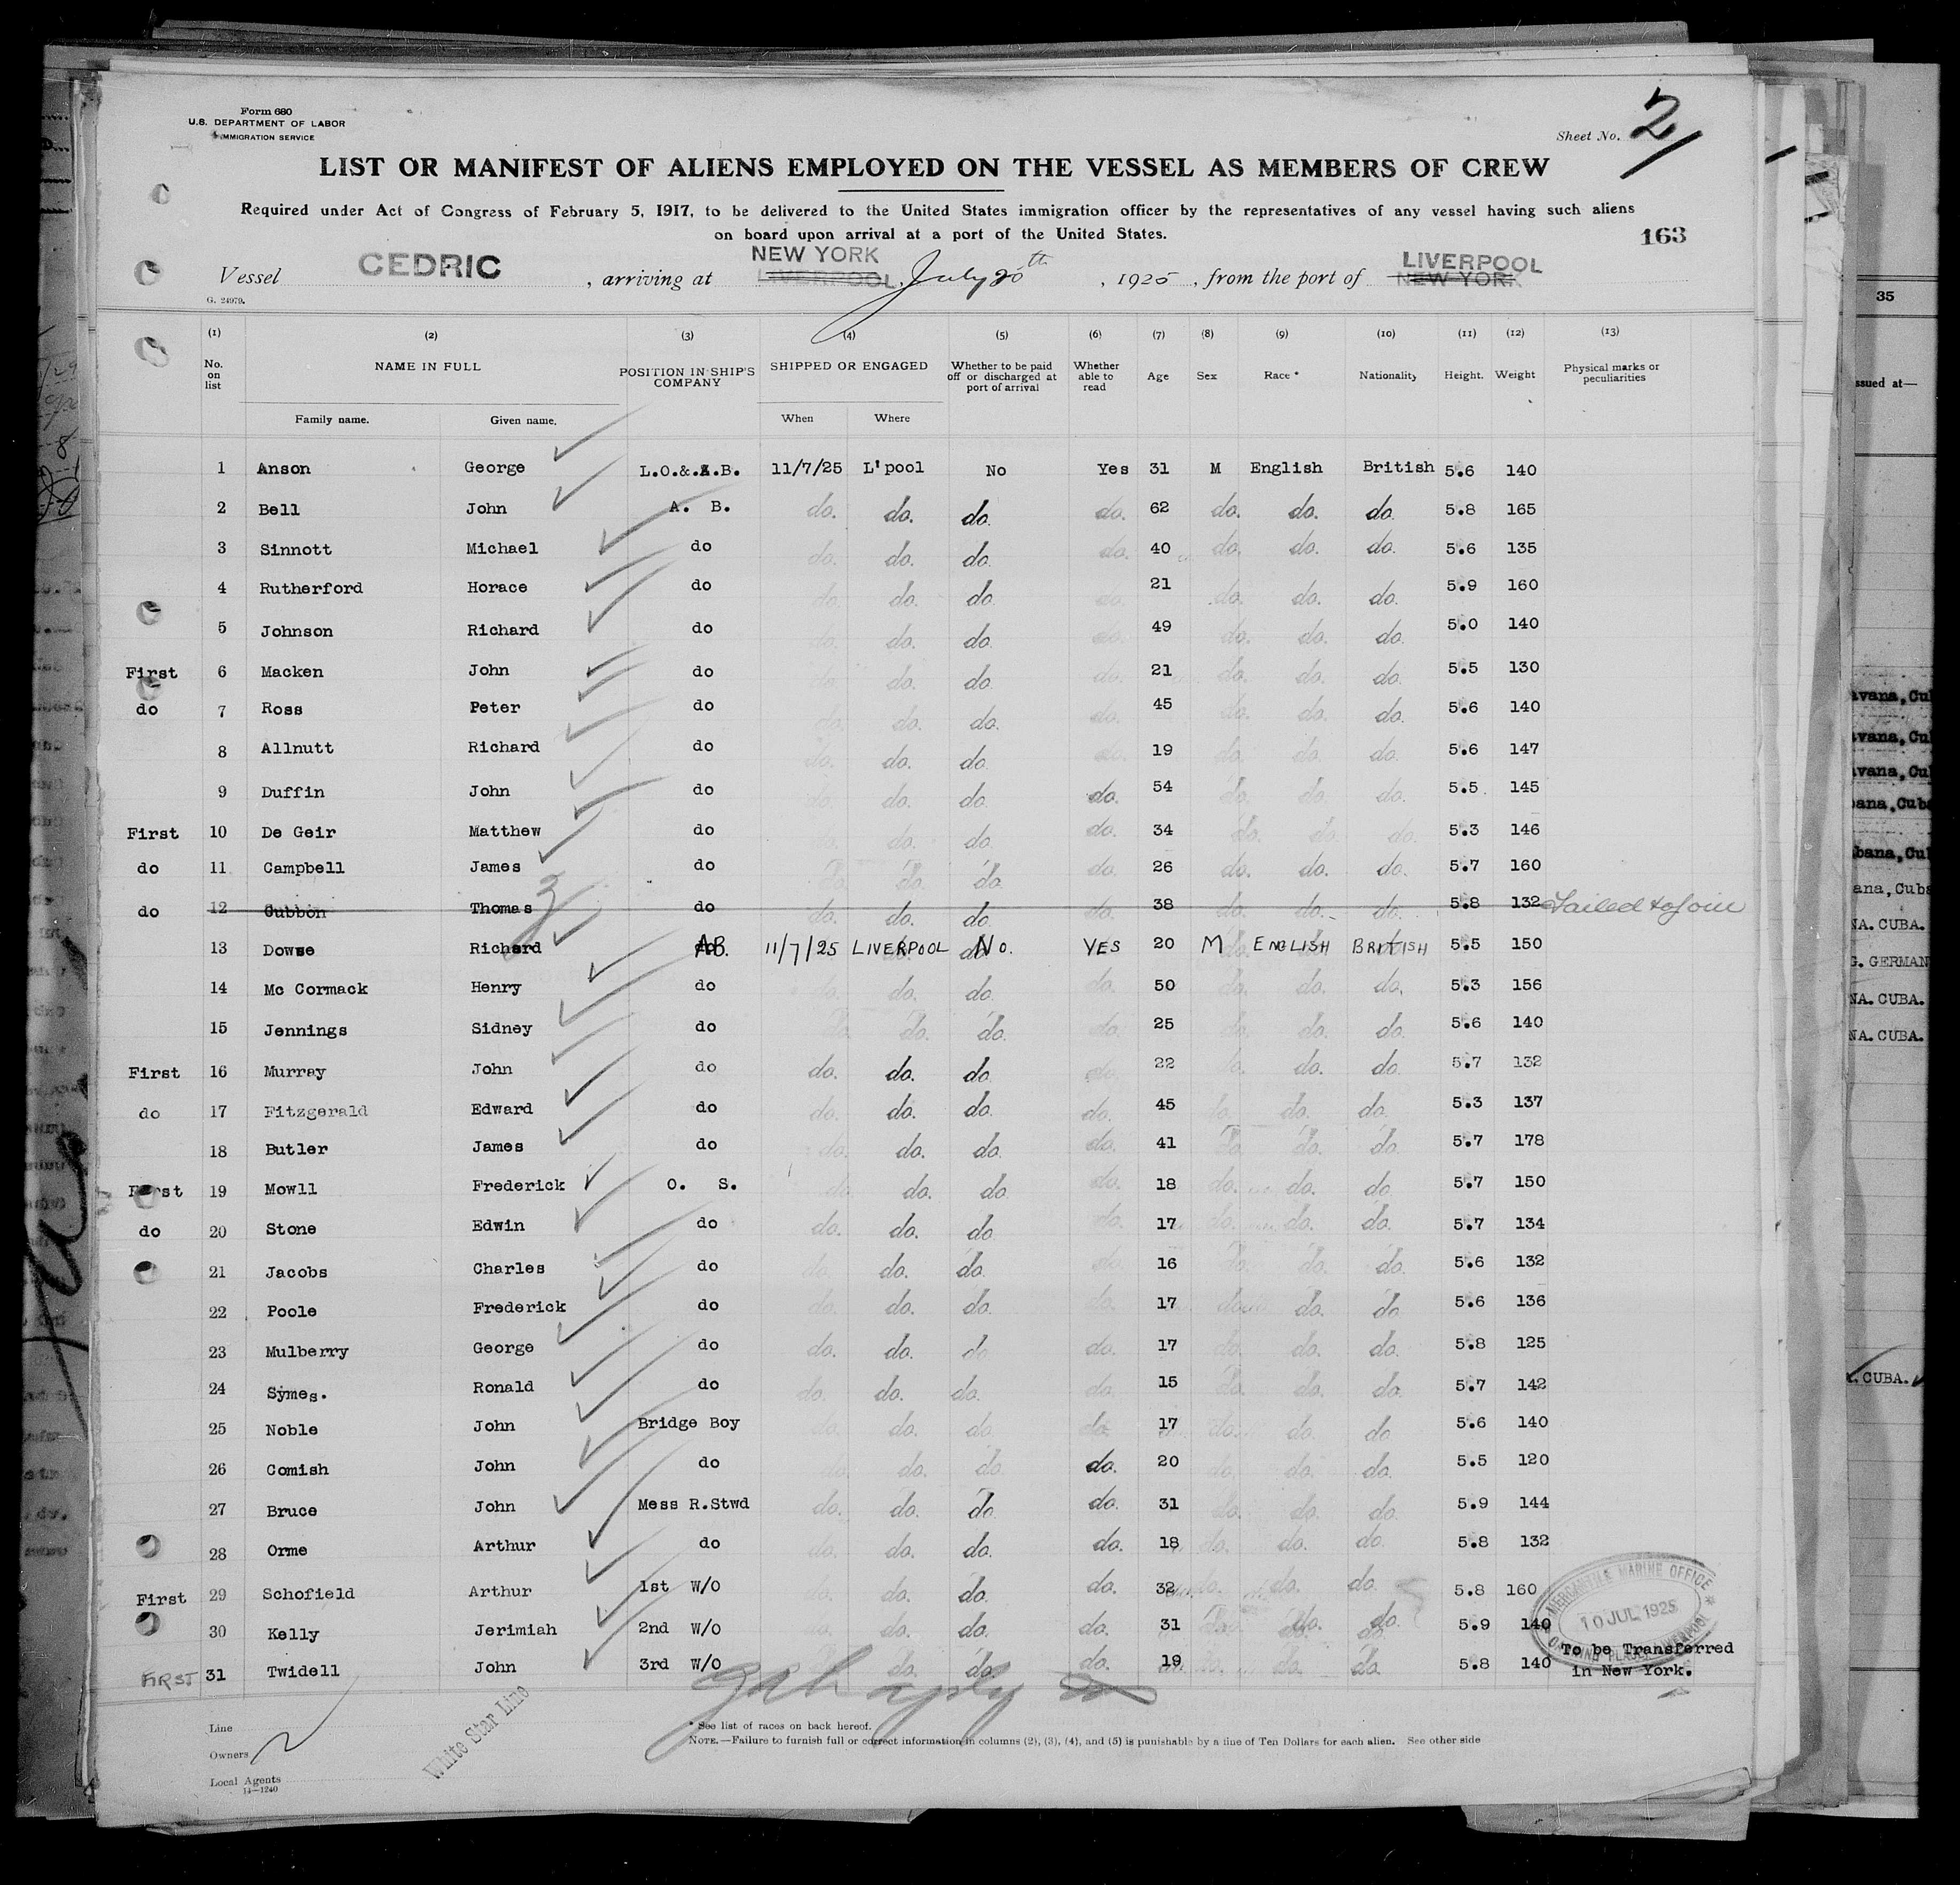 Form 680
U.S. DEPARTMENT OF LABOR
IMMIGRATION SERVICE
Sheet No. 2
LIST OR MANIFEST OF ALIENS EMPLOYED ON THE VESSEL AS MEMBERS OF CREW
Required under Act of Congress of February 5, 1917, to be delivered to the United States immigration officer by the representatives of any vessel having such aliens
on board upon arrival at a port of the United States.
163
NEW YORK LIVERPOOL
Vessel CEDRIC , arriving at LIVERPOOL, July 20th , 1925 , from the port of NEW YORK
G. 24979.
(1) (2) (3) (4) (5) (6) (7) (8) (9) (10) (11) (12) (13)
No. on list NAME IN FULL POSITION IN SHIP'S COMPANY SHIPPED OR ENGAGED Whether to be paid off or discharged at port of arrival Whether able to read Age Sex Race * Nationality Height. Weight Physical marks or peculiarities
Family name. Given name. When Where
1 Anson George L.O.&.A.B. 11/7/25 L'pool No Yes 31 M English British 5.6 140
2 Bell John A. B. do. do. do. do. 62 do. do. do. 5.8 165
3 Sinnott Michael do do. do. do. do. 40 do. do. do. 5.6 135
4 Rutherford Horace do do. do. do. do. 21 do. do. do. 5.9 160
5 Johnson Richard do do. do. do. do. 49 do. do. do. 5.0 140
First 6 Macken John do do. do. do. do. 21 do. do. do. 5.5 130
do 7 Ross Peter do do. do. do. do. 45 do. do. do. 5.6 140
8 Allnutt Richard do do. do. do. do. 19 do. do. do. 5.6 147
9 Duffin John do do. do. do. do. 54 do. do. do. 5.5 145
First 10 De Geir Matthew do do. do. do. do. 34 do. do. do. 5.3 146
do 11 Campbell James do do. do. do. do. 26 do. do. do. 5.7 160
do 12 Gubbon Thomas do do. do. do. do. 38 do. do. do. 5.8 132 Failed to Join
13 Dowse Richard AB. 11/7/25 LIVERPOOL No. YES 20 M ENGLISH BRITISH 5.5 150
14 Mc Cormack Henry do do. do. do. do. 50 do. do. do. 5.3 156
15 Jennings Sidney do do. do. do. do. 25 do. do. do. 5.6 140
First 16 Murray John do do. do. do. do. 22 do. do. do. 5.7 132
do 17 Fitzgerald Edward do do. do. do. do. 45 do. do. do. 5.3 137
18 Butler James do do. do. do. do. 41 do. do. do. 5.7 178
First 19 Mowll Frederick O. S. do. do. do. do. 18 do. do. do. 5.7 150
do 20 Stone Edwin do do. do. do. do. 17 do. do. do. 5.7 134
21 Jacobs Charles do do. do. do. do. 16 do. do. do. 5.6 132
22 Poole Frederick do do. do. do. do. 17 do. do. do. 5.6 136
23 Mulberry George do do. do. do. do. 17 do. do. do. 5.8 125
24 Symes. Ronald do do. do. do. do. 15 do. do. do. 5.7 142
25 Noble John Bridge Boy do. do. do. do. 17 do. do. do. 5.6 140
26 Comish John do do. do. do. do. 20 do. do. do. 5.5 120
27 Bruce John Mess R.Stwd do. do. do. do. 31 do. do. do. 5.9 144
28 Orme Arthur do do. do. do. do. 18 do. do. do. 5.8 132
First 29 Schofield Arthur 1st W/O do. do. do. do. 32 do. do. do. 5.8 160
30 Kelly Jerimiah 2nd W/O do. do. do. do. 31 do. do. do. 5.9 140
FIRST 31 Twidell John 3rd W/O do. do. do. do. 19 do. do. do. 5.8 140 To be Transferred
in New York.
MERCANTILE MARINE OFFICE
10 JUL 1925
LIVERPOOL
Line
Owners
White Star Line
Local Agents
14—1240
* See list of races on back hereof.
NOTE.—Failure to furnish full or correct information in columns (2), (3), (4), and (5) is punishable by a fine of Ten Dollars for each alien. See other side
35
ssued at—
avana, Cu
avana, Cu
avana, Cu
bana, Cuba
bana, Cu
ana, Cuba
NA. CUBA.
G. GERMAN
NA. CUBA.
NA. CUBA.
. CUBA.